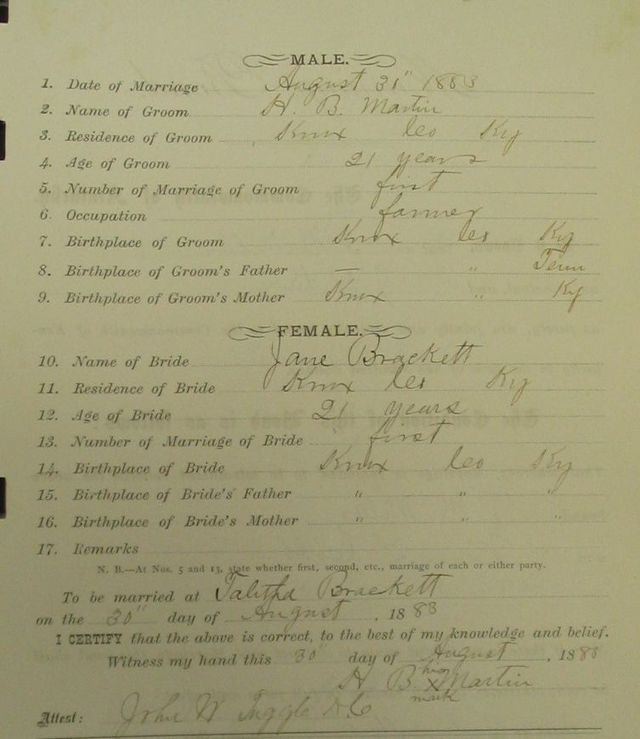 MALE.
1. Date of Marriage August 30" 1883
2. Name of Groom H. B. Martin
3. Residence of Groom Knox Co Ky
4. Age of Groom 21 years
5. Number of Marriage of Groom first
6. Occupation farmer
7. Birthplace of Groom Knox Co Ky
8. Birthplace of Groom's Father — " Tenn
9. Birthplace of Groom's Mother Knox " Ky
FEMALE.
10. Name of Bride Jane Brackett
11. Residence of Bride Knox Co Ky
12. Age of Bride 21 years
13. Number of Marriage of Bride first
14. Birthplace of Bride Knox Co Ky
15. Birthplace of Bride's Father " " "
16. Birthplace of Bride's Mother " " "
17. Remarks
N. B.—At Nos. 5 and 13, state whether first, second, etc., marriage of each or either party.
To be married at Talitha Brackett
on the 30" day of August, 1883
I CERTIFY that the above is correct, to the best of my knowledge and belief.
Witness my hand this 30" day of August, 1883
H B his x mark Martin
Attest: John W D C